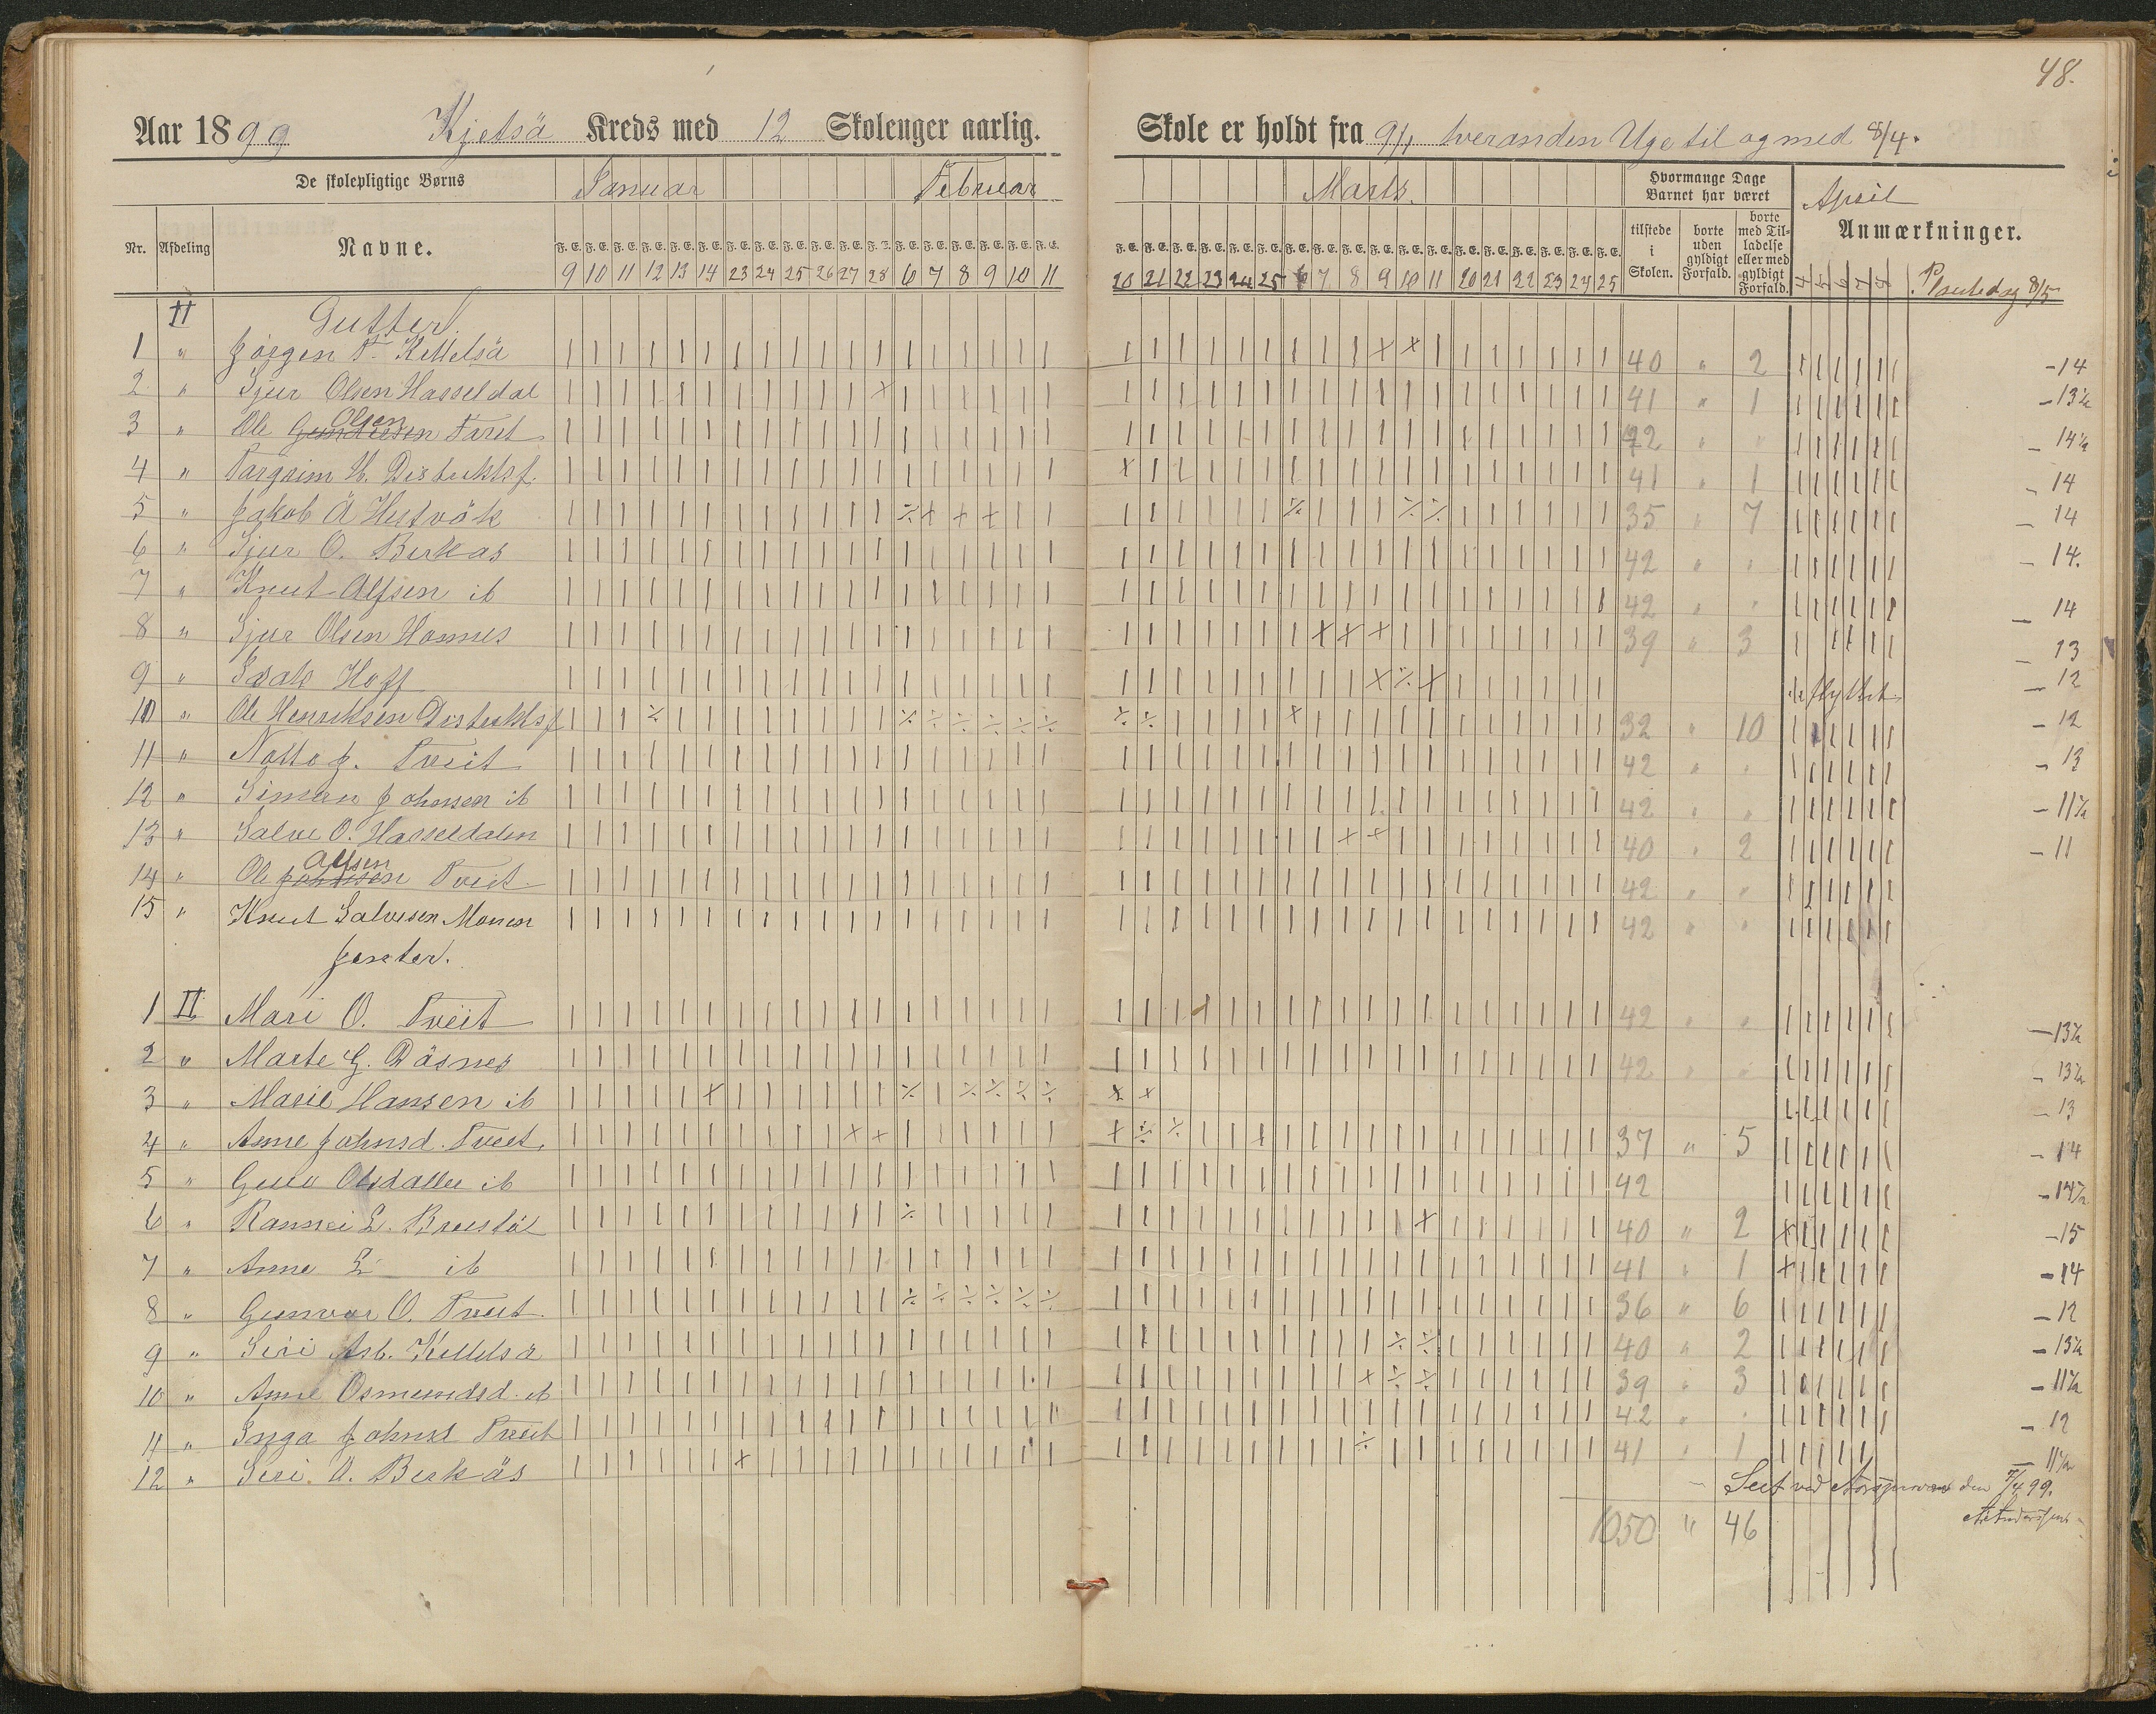 48.
Aar 1899 Kjetså Kreds med 12 Skoleuger aarlig. Skole er holdt fra 9/1 hveranden Uge til og med 8/4.
De skolepligtige Børns Januar Februar Marts. Hvormange Dage Barnet har været April
Nr. Afdeling Navne. F. E. F. E. F. E. F. E. F. E. F. E. F. E. F. E. F. E. F. E. F. E. F. E. F. E. F. E. F. E. F. E. F. E. F. E. tilstede i Skolen. borte uden gyldigt Forfald. borte med Tilladelse eller med gyldigt Forfald. Anmærkninger.
9 10 11 12 13 14 23 24 25 26 27 28 6 7 8 9 10 11 20 21 22 23 24 25 6 7 8 9 10 11 20 21 22 23 24 25 8/5
II Gutter.
1 " Jørgen T. Kittelså 40 " 2 -14
2 " Sjur Olsen Hasseldal 41 " 1 -13½
3 " Ole Olsen Faret 42 " " -14½
4 " Targrim H. Distriktsf. 41 " 1 -14
5 " Jakob Å Hestvåk 35 " 7 -14
6 " Sjur O. Berkås 42 " " -14.
7 " Knut Alfsen ib 42 " " -14
8 " Sjur Olsen Homnes 39 " 3 -13
9 " Isak Hoff flyttet -12
10 " Ole Henriksen Distriktsf 32 " 10 -12
11 " Notto J. Tveit 42 " " -13
12 " Simen Johnsen ib 42 " " -11½
13 " Salve O. Hasseldalen 40 " 2 -11
14 " Ole Johnsen Alfsen Tveit 42 " "
15 " Knut Salvesen Monen 42 " "
Jenter.
1 II Mari O. Tveit 42 " " -13½
2 " Marte G. Dåsnes 42 " " -13½
3 " Marie Hansen ib -13
4 " Anne Johnsd. Tveit. 37 " 5 -14
5 " Guro Olsdatter ib 42 -14½
6 " Rannei L. Breistøl 40 " 2 -15
7 " Anne L ib 41 " 1 -14
8 " Gunvor O. Tveit. 36 " 6 -12
9 " Siri Asb. Kittelså 40 " 2 -13½
10 " Anne Osmundsd. ib 39 " 3 -11½
11 " Inga Johnsd Tveit 42 " " -12
12 " Siri O. Berkås 41 " 1 -11½
Seet ved den 7/4 99.
1050 " 46